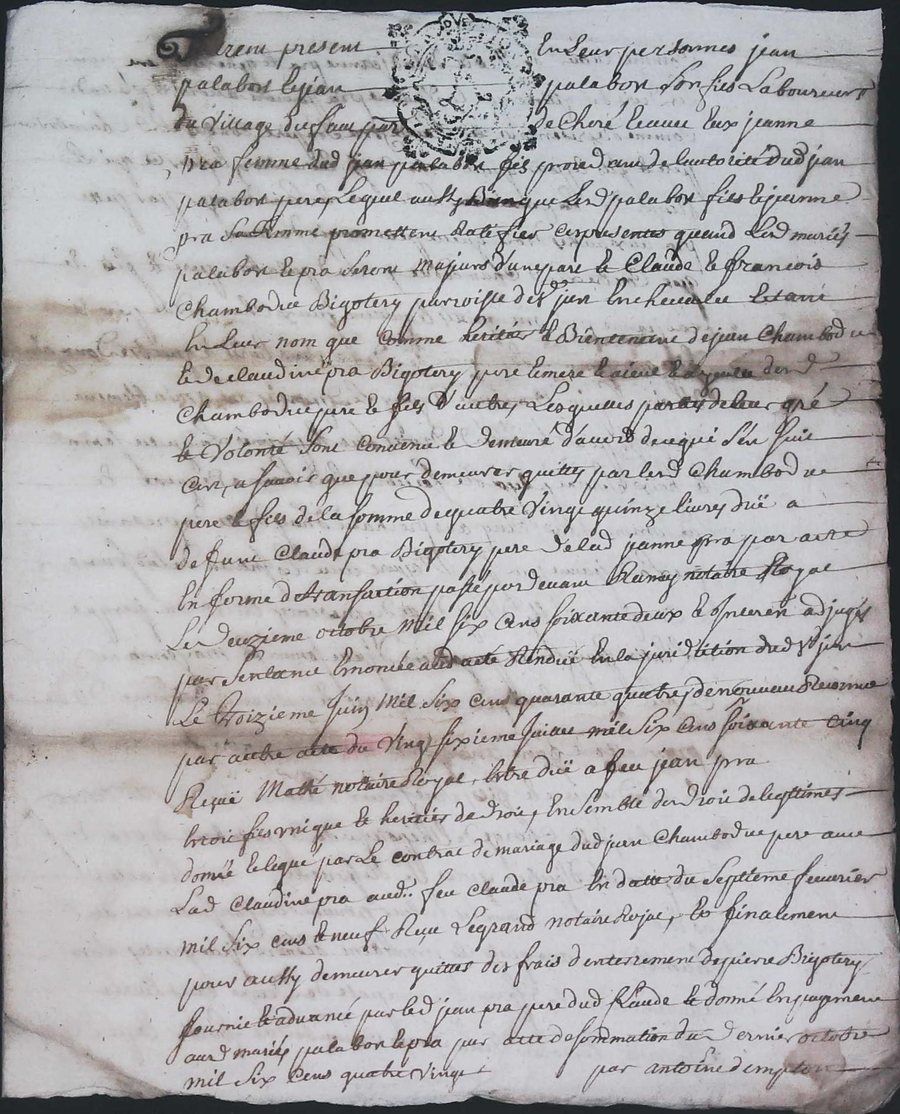 Furent present En Leur personnes jean
palabost & jean palabost son fils Laboureurs
du Village du fau par de Cheré & avec Eux jeanne
pra femme dud jean palabost fils procedant de Lautorité dud jean
palabost pere Lequel aussy que Led palabost fils & jeanne
pra sa femme promettent Ratifier Ces presentes quand Led mariés
palabost & pra seront Majeurs d'une part & Claude & francois
Chambodue Bigotery parroisse de St jean
En Leur nom que Comme heritiers & Bientenant de jean Chambodue
& de Claudine pra Bigotery pere & mere & aieul & ayeule desd
Chambodue pere & fils d'autre, Lesquelles parties de Leur gré
& Volonté sont Convenue & demeuré d'acord de ce qui s'en suit
Cest a savoir que pour demeurer quittes par Lesd Chambodue
pere & fils de la somme de quatre Vingt quinze Livres düe a
defunt Claude pra Bigotery pere de lad janne pra par acte
En forme de transaction passé par devant notaire Royal
Le deuzieme octobre mil six Cens soixante deux & Interest adjugés
par sentance Enoncée aud acte Rendüe En la juridition dud St jean
Le troizieme Juin mil six Cens quarante quatre, de nouveau Reconnue
par autre acte du Vingt sixieme Juillet mil six Cens soixante Cinq
Reçuë Mathé notaire Royal, Estre düe a feu jean pra
fils unique & heritier de droit, Ensemble des droit de legitimes
donné & legué par Le Contrat de mariage dud jean Chambodue pere avec
Lad Claudine pra aud feu Claude pra En datte du septieme feuvrier
mil six Cens & neuf Reçu Legrand notaire Royal, & finalement
pour aussy demeurer quittes des frais denterrement de pierre Bigotery
fournie & advancé par led jean pra pere dud Claude & donné En payement
aud mariés palabost & pra par acte de sommation du dernier octobre
mil six Cens quatre Vingt par antoine